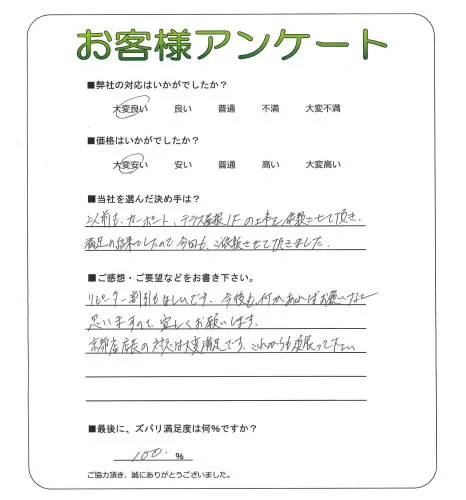 お客様アンケート
■弊社の対応はいかがでしたか？
大変良い 良い 普通 不満 大変不満
■価格はいかがでしたか？
大変安い 安い 普通 高い 大変高い
■当社を選んだ決め手は？
以前も、カーポート、テラス屋根1Fの工事を依頼させて頂き、
満足の結果でしたので今回も、ご依頼させて頂きました。
■ご感想・ご要望などをお書き下さい。
リピーター割引もほしいです。今後も、何かあればお願いしたいと
思いますので、宜しくお願いします。
京都店店長の対応は大変満足です。これからも頑張って下さい
■最後に、ズバリ満足度は何%ですか？
100. %
ご協力頂き、誠にありがとうございました。